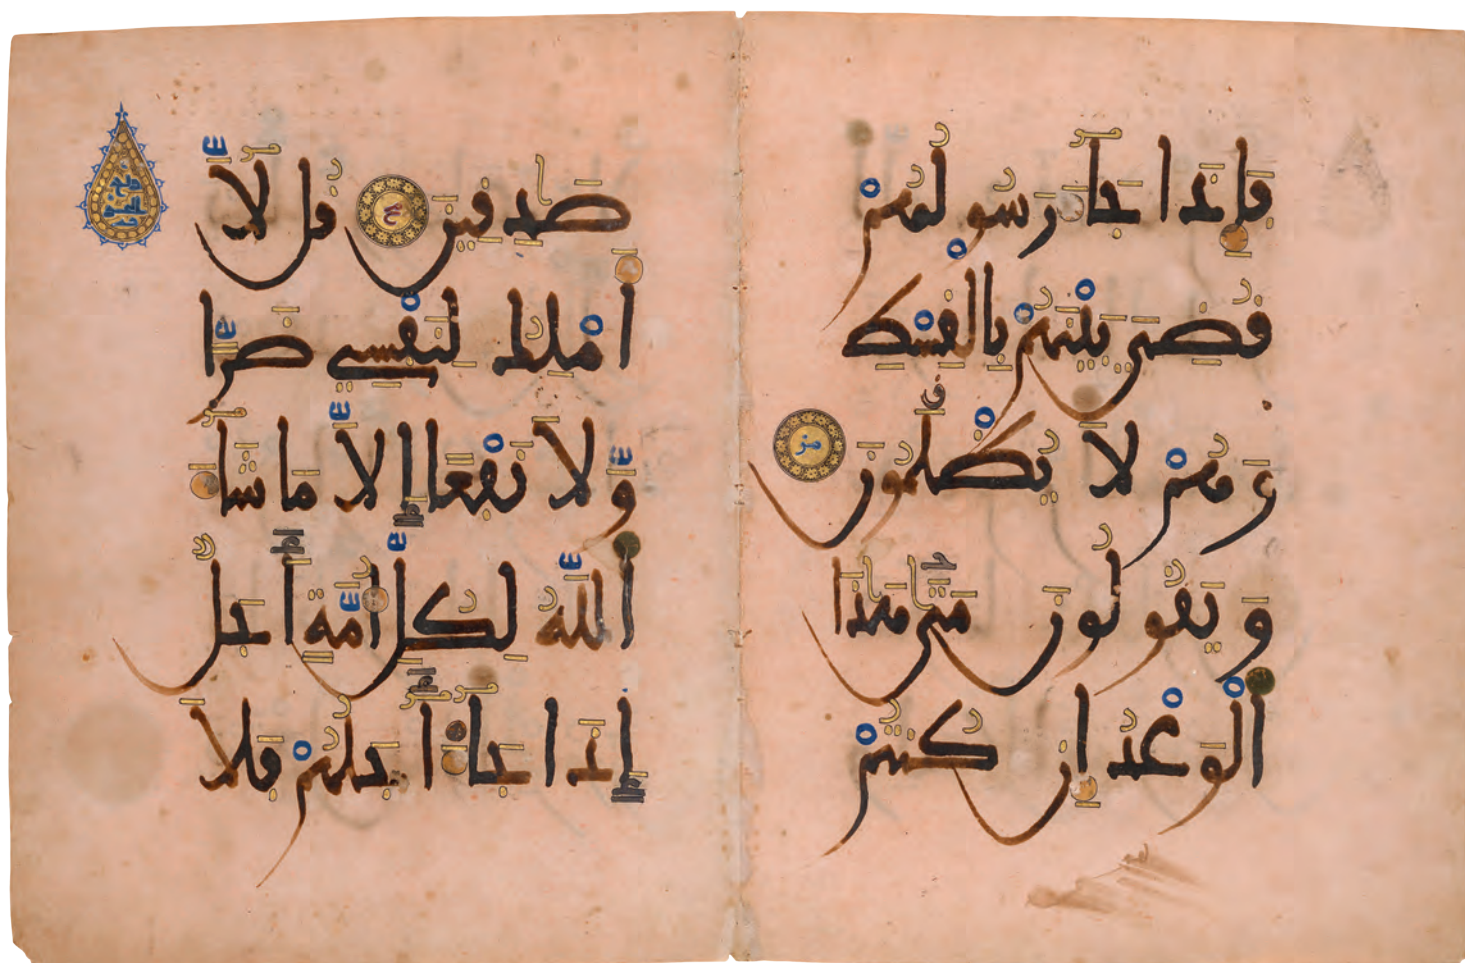 فَإِذَا جَآءَ رَسُولُهُمْ
قُضِيَ بَيْنَهُمْ بِالْقِسْطِ
وَهُمْ لَا يُظْلَمُونَ مز
وَيَقُولُونَ مَتَىٰ هَٰذَا
الْوَعْدُ إِن كُنتُمْ
صَٰدِقِينَ مح قُل لَّآ
أَمْلِكُ لِنَفْسِي ضَرًّا
وَّلَا نَفْعًا إِلَّا مَا شَآءَ
اللَّهُ لِكُلِّ أُمَّةٍ أَجَلٌ
إِذَا جَآءَ أَجَلُهُمْ فَلَا